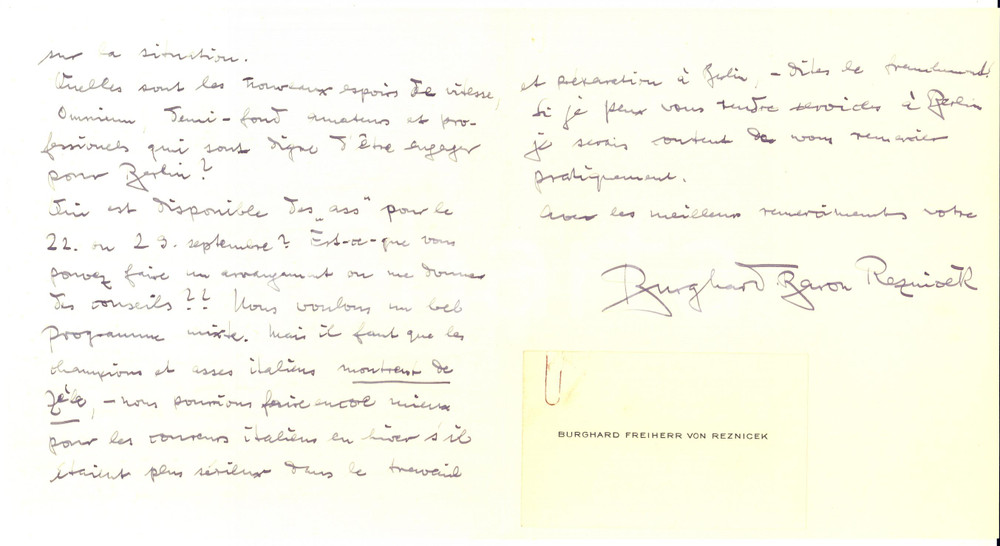 sur la situation.
Quelles sont les nouveaux espoirs de vitesse,
Omnium, Demi-fond amateurs et pro-
fessionels qui sont digne d'être engager
pour Berlin?
Qui est disponible des „ass" pour le
22. ou 29. septembre? Est-ce-que vous
pouvez faire un arrangement ou me donner
des conseils?? Nous voulons un bel
programme mixte. Mais il faut que les
champions et asses italiens montrent de
zèle, – nous pourrions faire encore mieux
pour les coureurs italiens en hiver s'il
étaient plus sérieux dans le travail
et préparation à Berlin, – dites le franchement!
Si je peux vous rendre services à Berlin
je serais content de vous remercier
pratiquement.
Avec les meilleurs remerciments votre
Burghard Baron Reznicek
BURGHARD FREIHERR VON REZNICEK